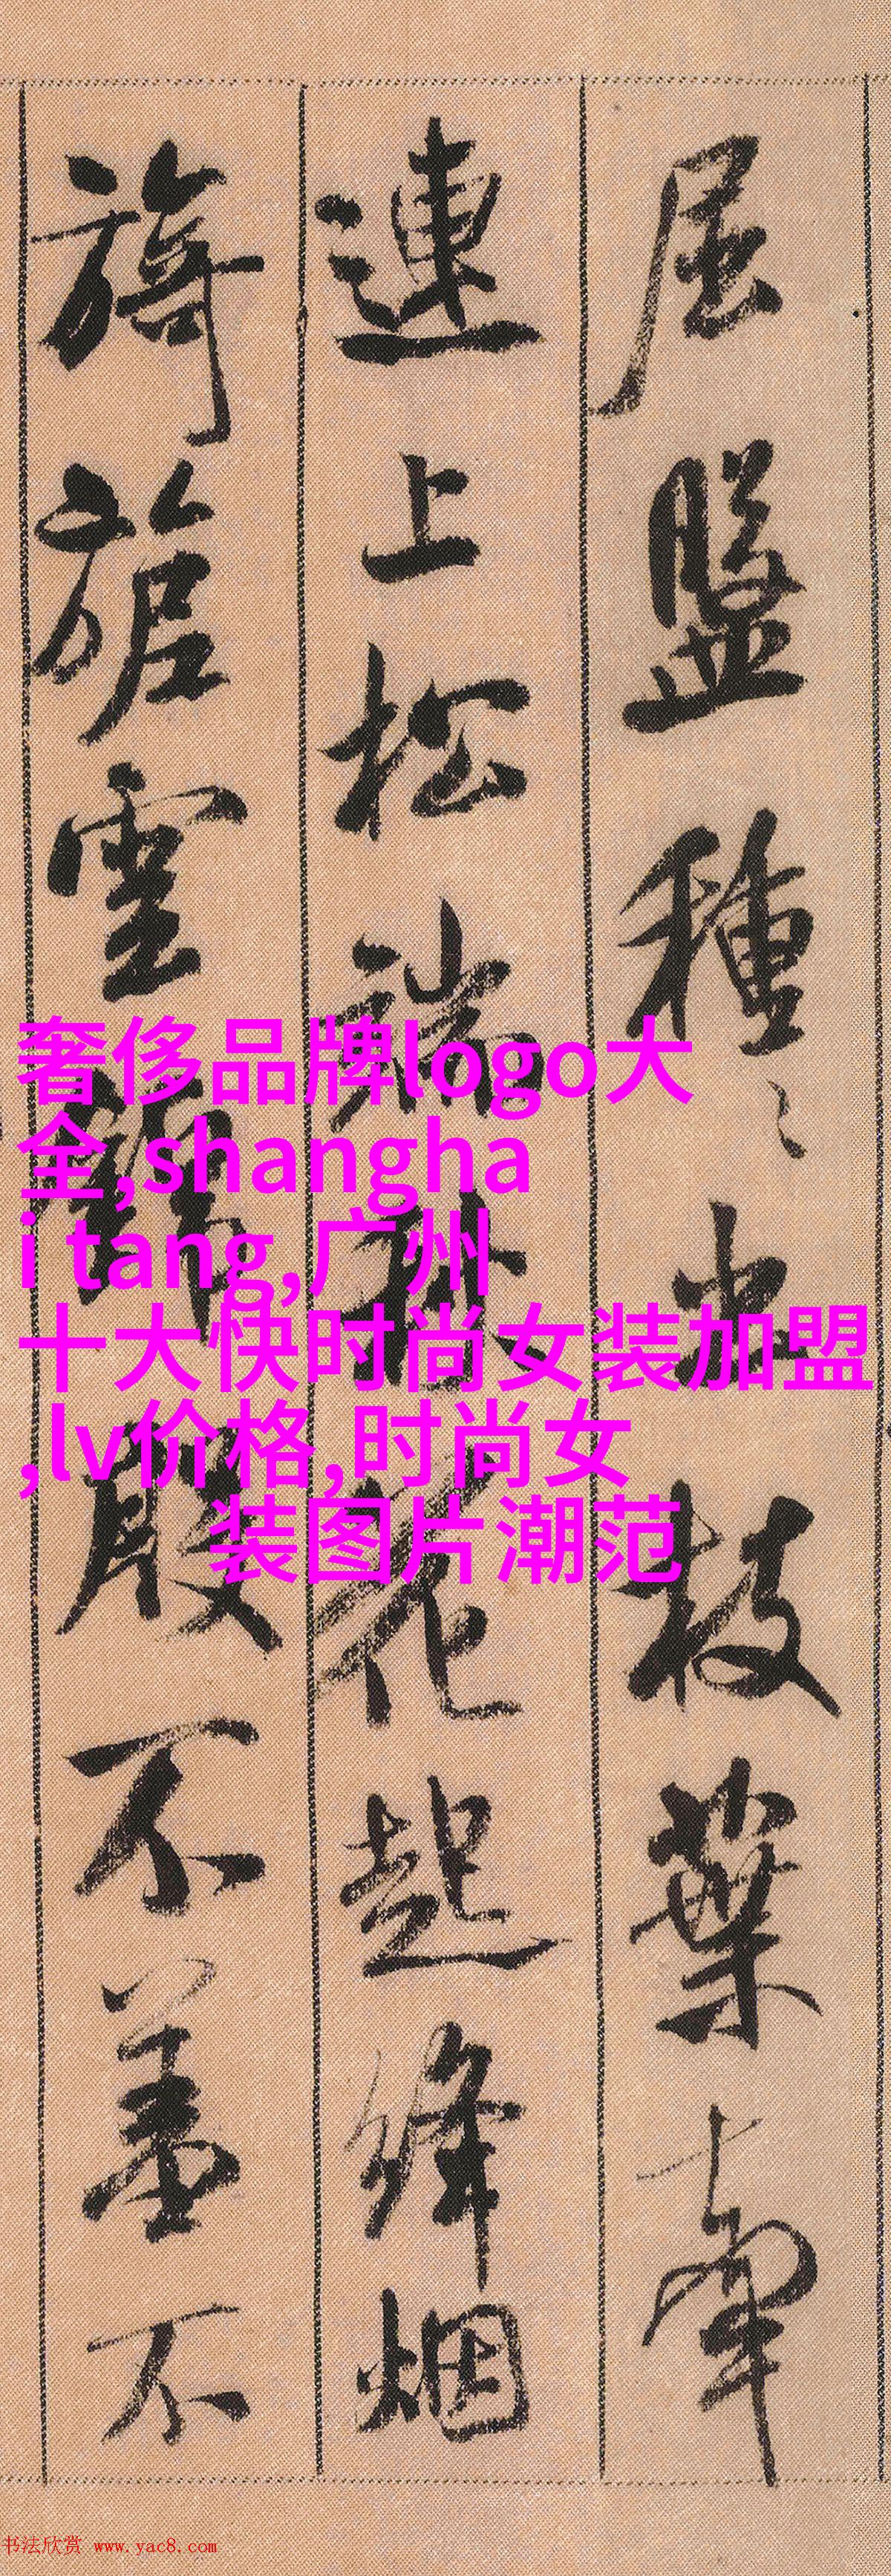 屈盤種〻出枝葉牽
連上松端秋花起絳烟
旖旎雲錦殷不羞不
奢侈品牌logo大
全,shangha
i tang,广州
十大快时尚女装加盟
,lv价格,时尚女
装图片潮范
书法欣赏 www.yac8.com